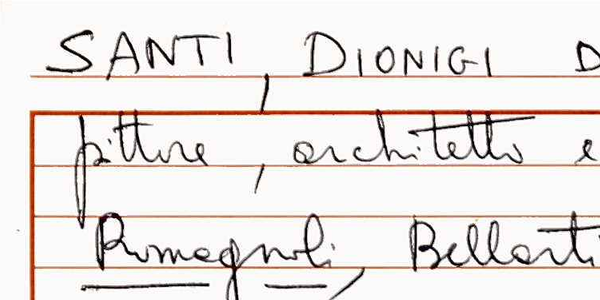 SANTI, DIONIGI D
pittore, architetto e
Romagnoli, Bellarti